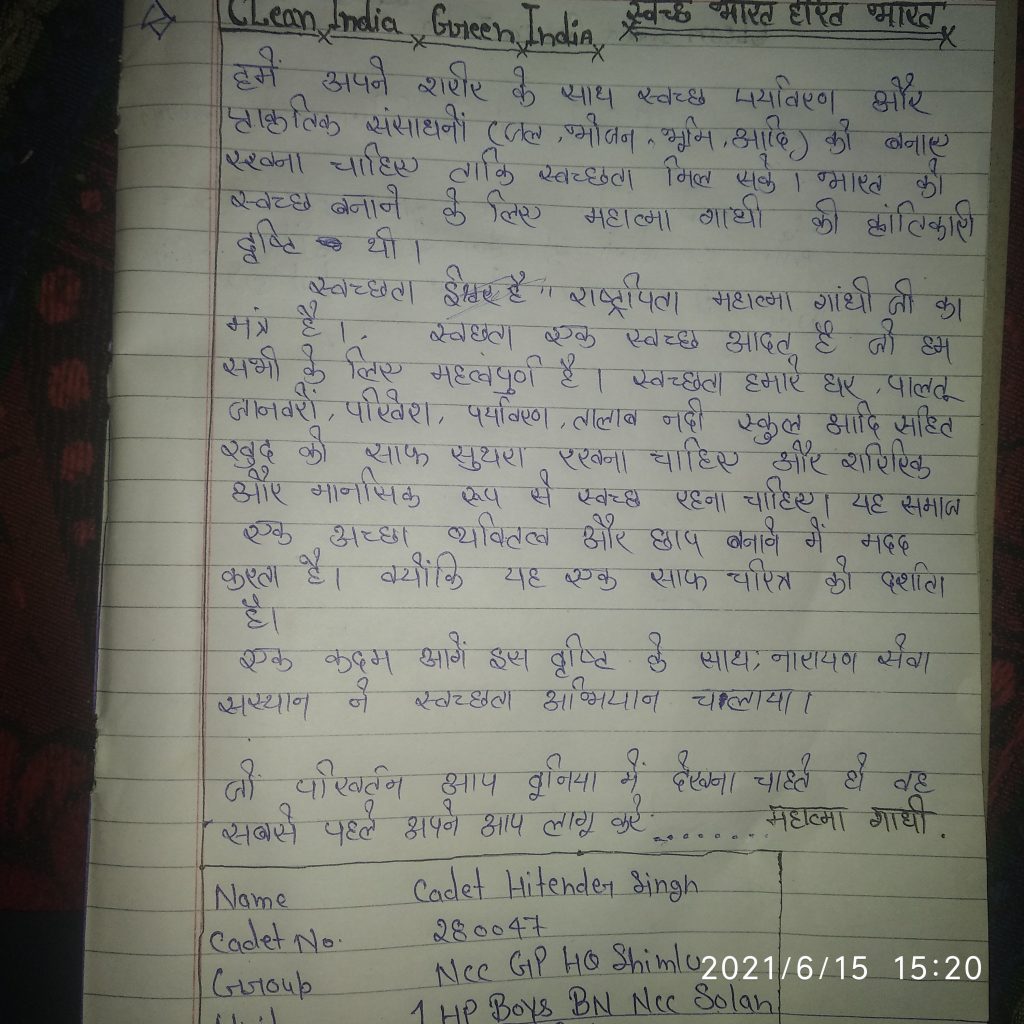 Clean India Green India स्वच्छ भारत हरित भारत
हमें अपने शरीर के साथ स्वच्छ पर्यावरण और
प्राकृतिक संसाधनों (जल, भोजन, भूमि, आदि) को बनाए
रखना चाहिए ताकि स्वच्छता मिल सके। भारत को
स्वच्छ बनाने के लिए महात्मा गांधी की क्रांतिकारी
दृष्टि थी।
स्वच्छता ईश्वर है" राष्ट्रपिता महात्मा गांधी जी का
मंत्र है। स्वछता एक स्वच्छ आदत है जो हम
सभी के लिए महत्वपुर्ण है। स्वच्छता हमारे घर, पालतू
जानवरों, परिवेश, पर्यावरण, तालाब नदी स्कुल आदि सहित
खुद को साफ सुथरा रखना चाहिए और शारिरिक
और मानसिक रूप से स्वच्छ रहना चाहिए। यह समाज
एक अच्छा व्यक्तित्व और छाप बनाने में मदद
करता है। क्योंकि यह एक साफ चरित्र को दर्शाता
है।
एक कदम आगें इस दृष्टि के साथ; नारायण सेवा
सस्थान ने स्वच्छता अभियान चलाया।
जो परिवर्तन आप दुनिया में देखना चाहते हो वह
सबसे पहले अपने आप लागू करे ......... महात्मा गांधी.
Name Cadet Hitender Singh
Cadet No. 280047
Group Ncc GP HQ Shimla
Unit 1 HP Boys BN Ncc Solan
2021/6/15 15:20